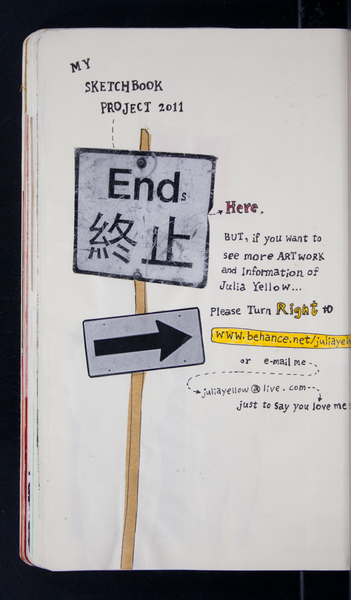 MY
SKETCHBOOK
PROJECT 2011
Ends
終止
Here.
BUT, if you want to
see more ARTWORK
and Information of
Julia Yellow...
Please Turn Right to
www.behance.net/juliayell
or e-mail me
juliayellow@live.com
just to say you love me